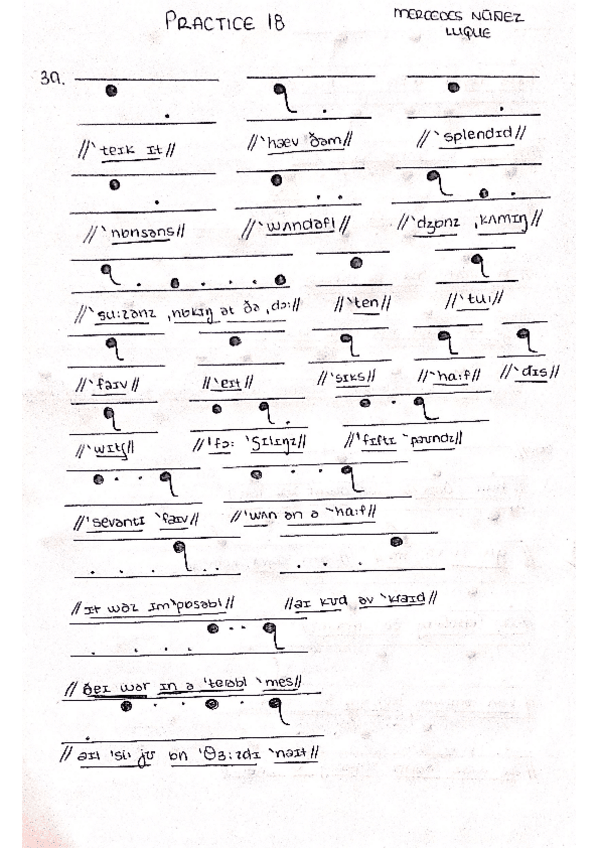 PRACTICE 18
MERCEDES NÚÑEZ
LUQUE
3A.
//ˋteɪk ɪt// //ˋhæv ðəm// //ˋsplendɪd//
//ˋnɒnsəns// //ˋwʌndəfl// //ˋdʒɒnz ˌkʌmɪŋ//
//ˋsu:zənz ˌnɒkɪŋ ət ðə ˌdɔ:// //ˋten// //ˋtu:// 
//ˋfaɪv// //ˋeɪt// //ˋsɪks// //ˋha:f// //ˋðɪs//
//ˋwɪtʃ// //ˈfɔ: ˋʃɪlɪŋz// //ˈfɪftɪ ˋpaʊndz//
//ˈsevəntɪ ˋfaɪv// //ˈwʌn ən ə ˋha:f//
//ɪt wəz ɪmˋpɒsəbl// //aɪ kʊd əv ˋkraɪd//
//ðeɪ wər ɪn ə ˈterəbl ˋmes//
//aɪl ˈsi: jʊ ɒn ˈθɜ:zdɪ ˋnaɪt//